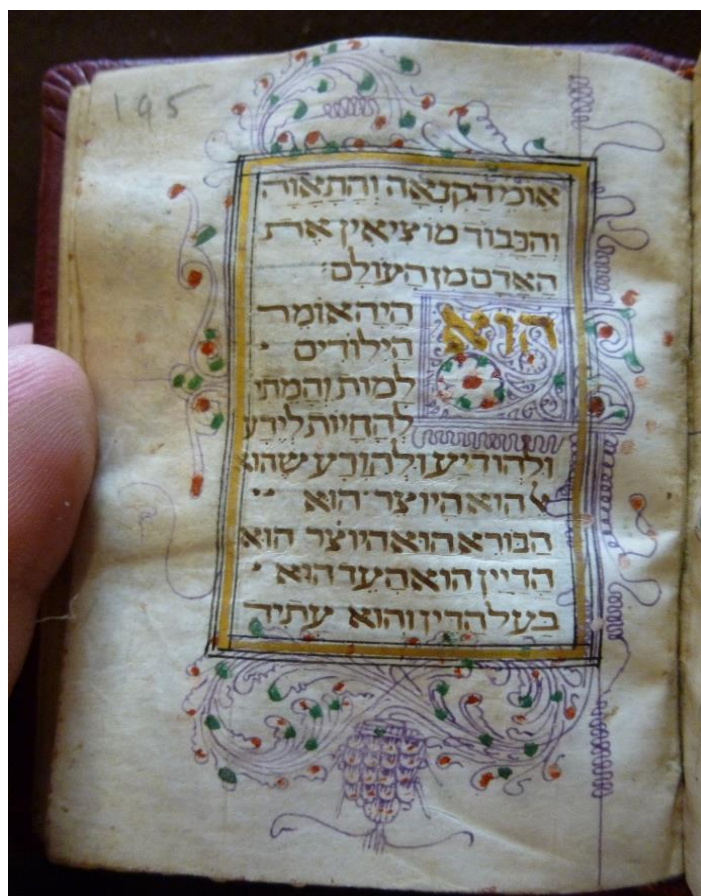 195
אומ' הקנאה והתאוה
והכבוד מוציאין את
האדם מן העולם:
הוא היה אומר
הילודים
למות והמתי
להחיות לידע
ולהודיע ולהודע שהוא
ﭏ הוא היוצר הוא
הבורא הוא היוצר הוא
הדיין הוא העד הוא
בעל הדין והוא עתיד